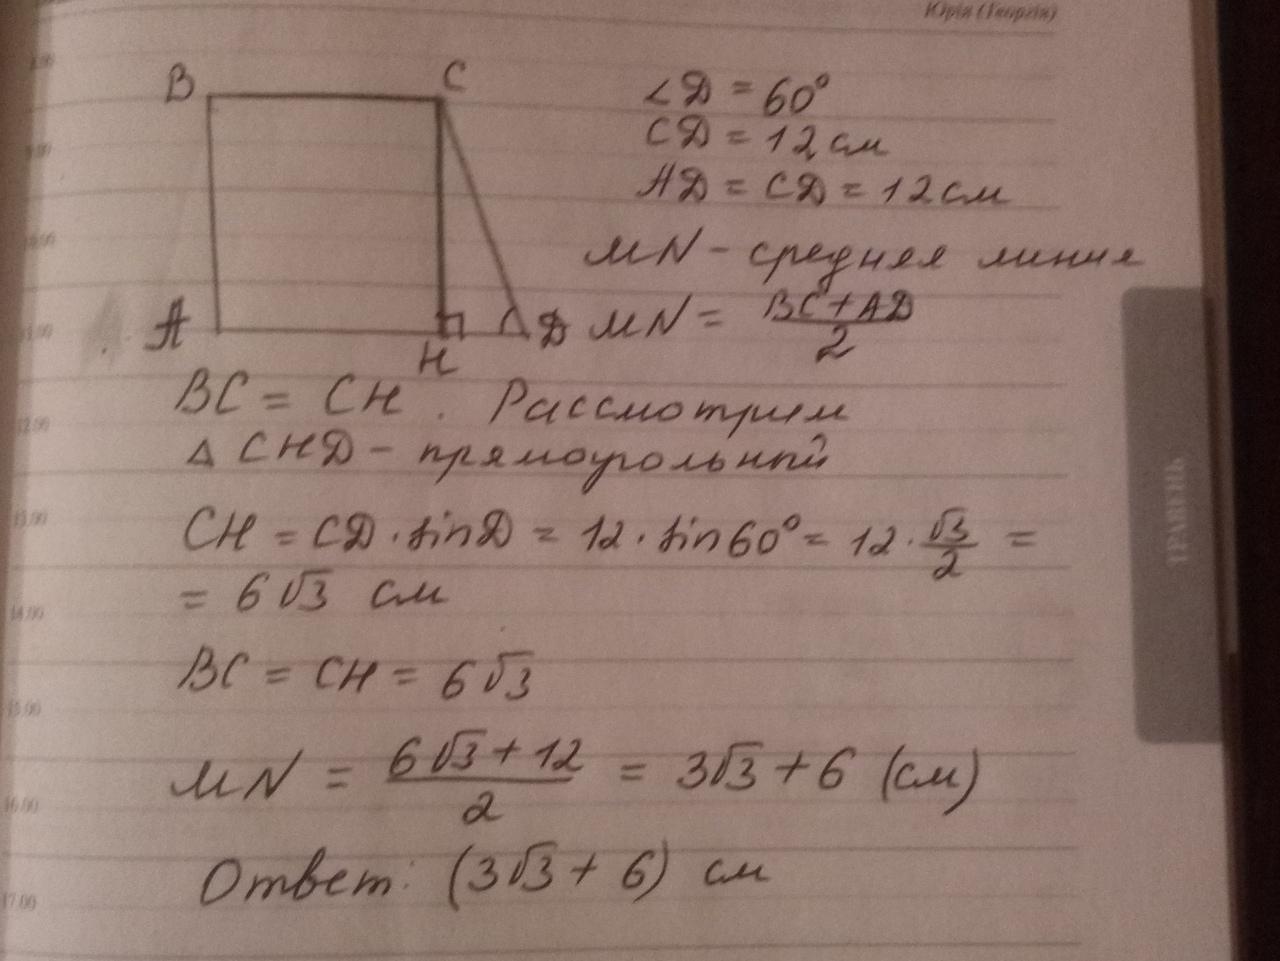 Юрія (Георгія)
B
C
A
H
D
∠D = 60°
CD = 12 см
AD = CD = 12 см
MN - средняя линия
MN = (BC + AD)/2
BC = CH. Рассмотрим
△ CHD - прямоугольный
CH = CD · sin D = 12 · sin 60° = 12 · √3/2 =
= 6√3 см
BC = CH = 6√3
MN = (6√3 + 12)/2 = 3√3 + 6 (см)
Ответ: (3√3 + 6) см
9.00
10.00
11.00
12.00
13.00
14.00
15.00
16.00
17.00
ТРАВЕНЬ